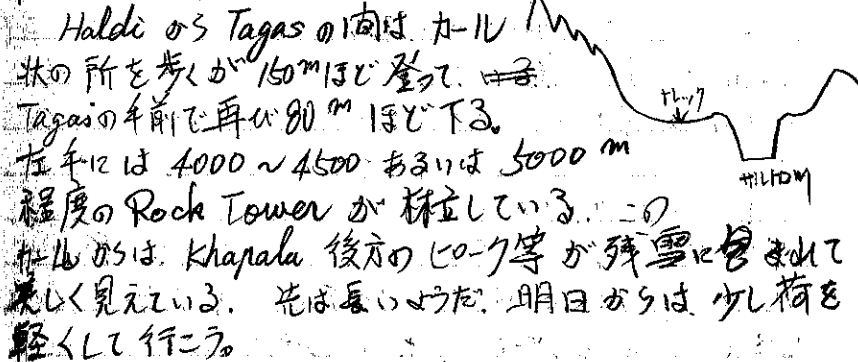 Haldi から Tagas の間は カール
状の所を歩くが 150mほど登って、
トレック
Tagasの手前で再び80mほど下る。
左手には 4000～4500 あるいは 5000m
サルトロ川
程度の Rock Tower が林立している。この
カールからは、Khapalu 後方のピーク等が残雪に包まれて
美しく見えている。先は長いようだ。明日からは少し荷を
軽くして行こう。